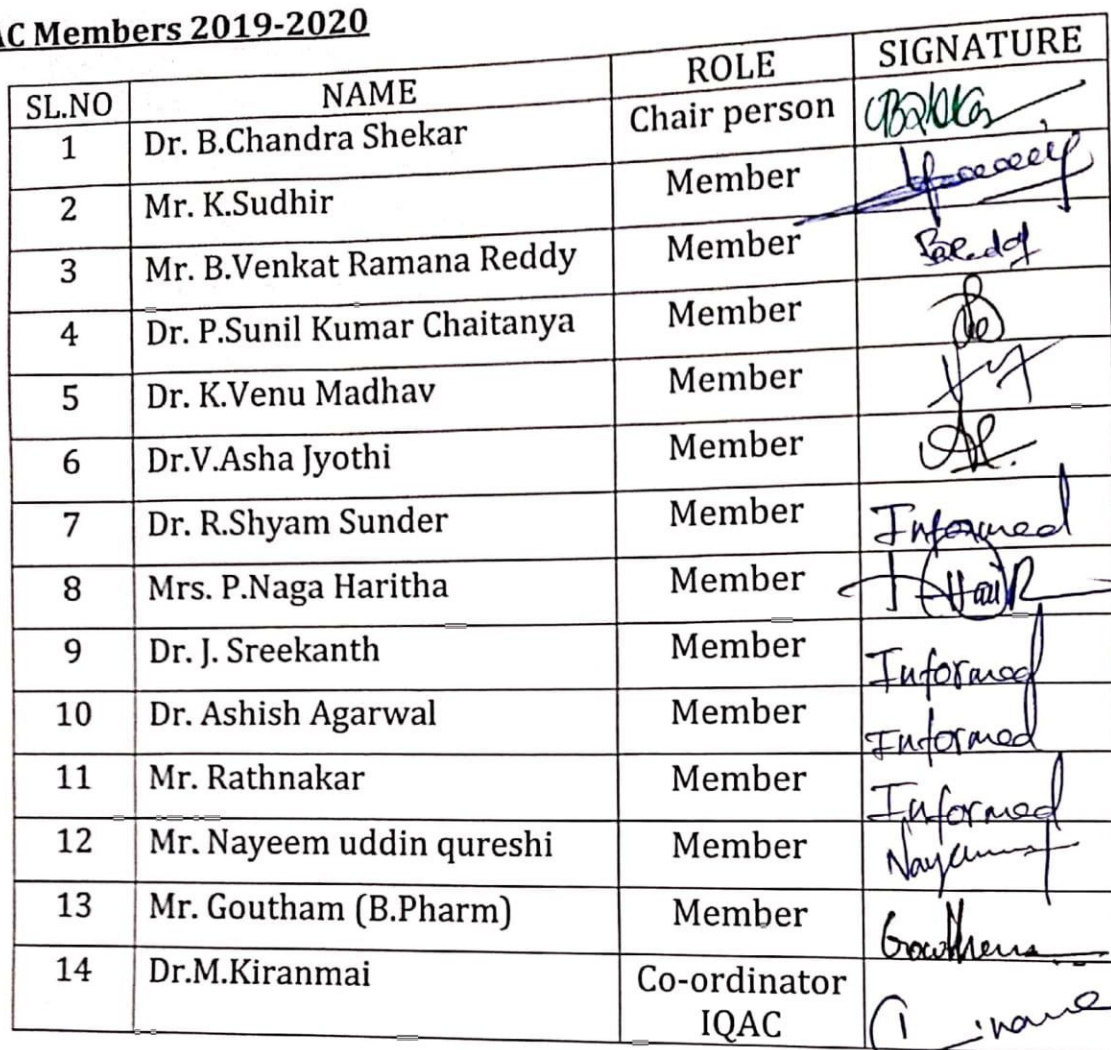 AC Members 2019-2020
SL.NO NAME ROLE SIGNATURE
1 Dr. B.Chandra Shekar Chair person
2 Mr. K.Sudhir Member
3 Mr. B.Venkat Ramana Reddy Member
4 Dr. P.Sunil Kumar Chaitanya Member
5 Dr. K.Venu Madhav Member
6 Dr.V.Asha Jyothi Member
7 Dr. R.Shyam Sunder Member Informed
8 Mrs. P.Naga Haritha Member
9 Dr. J. Sreekanth Member Informed
10 Dr. Ashish Agarwal Member Informed
11 Mr. Rathnakar Member Informed
12 Mr. Nayeem uddin qureshi Member
13 Mr. Goutham (B.Pharm) Member
14 Dr.M.Kiranmai Co-ordinator
IQAC